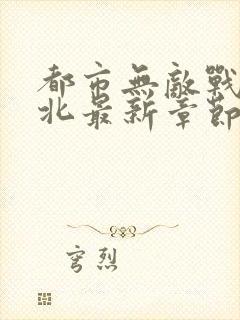 都市無敵戰
北最新章節
穹烈